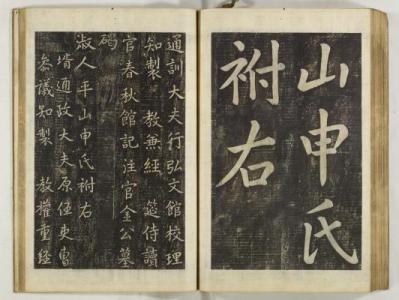 山申氏
祔右
通訓大夫行弘文館校理
知製 教兼經 筵侍讀
官春秋館記注官金公墓
碣
淑人平山申氏祔右
壻通政大夫原任吏曹
參議知製 教權重經